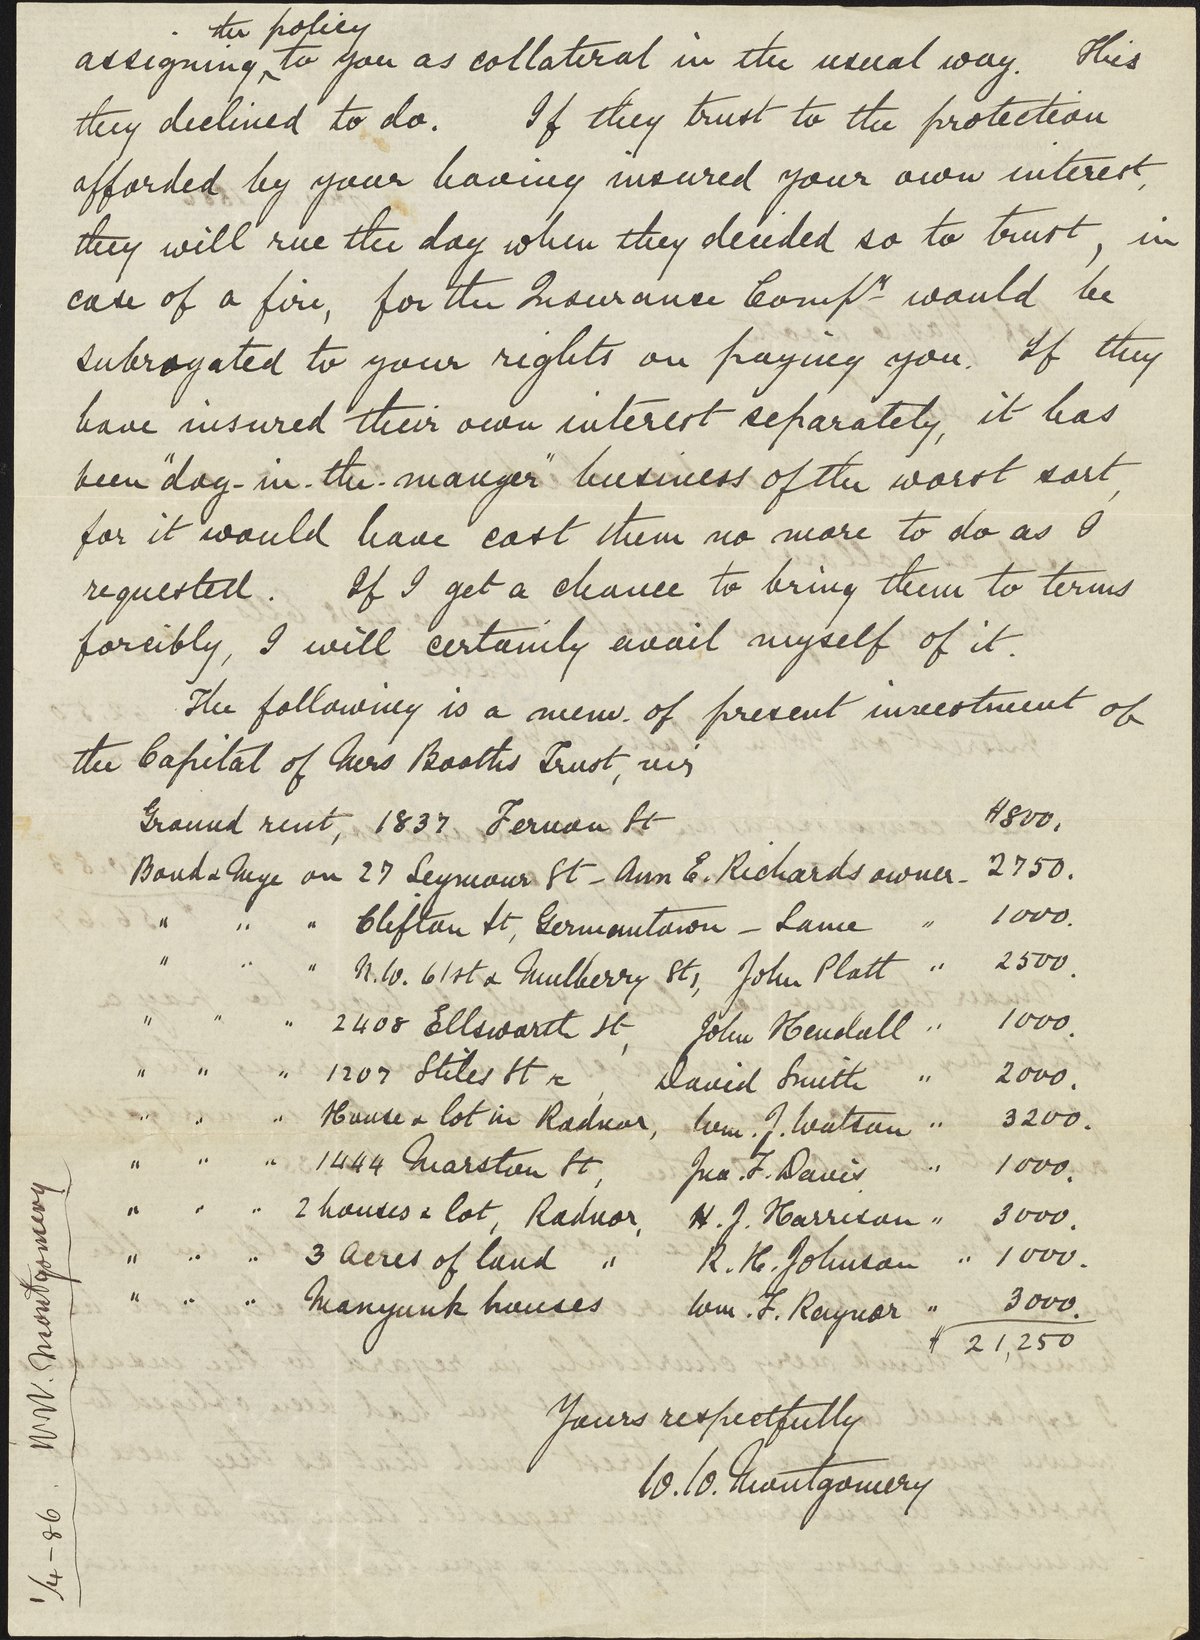 the policy
assigning ^ to you as collateral in the usual way. This
they declined to do. If they trust to the protection
afforded by your having insured your own interest,
they will rue the day when they decided so to trust, in
case of a fire, for the Insurance Compy would be
subrogated to your rights on paying you. If they
have insured their own interest separately, it has
been "dog-in-the-manger" business of the worst sort,
for it would have cost them no more to do as I
requested. If I get a chance to bring them to terms
forcibly, I will certainly avail myself of it.
The following is a mem. of present investment of
the Capital of Mrs Booths Trust, viz
Ground rent, 1837 Fernon St $800.
Bond & Mge on 27 Seymour St - Ann E. Richards owner - 2750.
" " " Clifton St, Germantown - Same " 1000.
" " " N.W. 61st & Mulberry Sts, John Platt " 2500.
" " " 2408 Ellsworth St, John Hendall " 1000.
" " " 1207 Stiles St &, David Smith " 2000.
" " " House & lot in Radnor, Wm. J. Watson " 3200.
" " " 1444 Marston St, Jno. F. Davis " 1000.
" " " 2 houses & lot, Radnor, H. J. Harrison " 3000.
" " " 3 Acres of land " R. H. Johnson " 1000.
" " " Manyunk houses Wm. F. Raynor " 3000.
$ 21,250
Yours respectfully
W. W. Montgomery
1/4-86. W.W. Montgomery